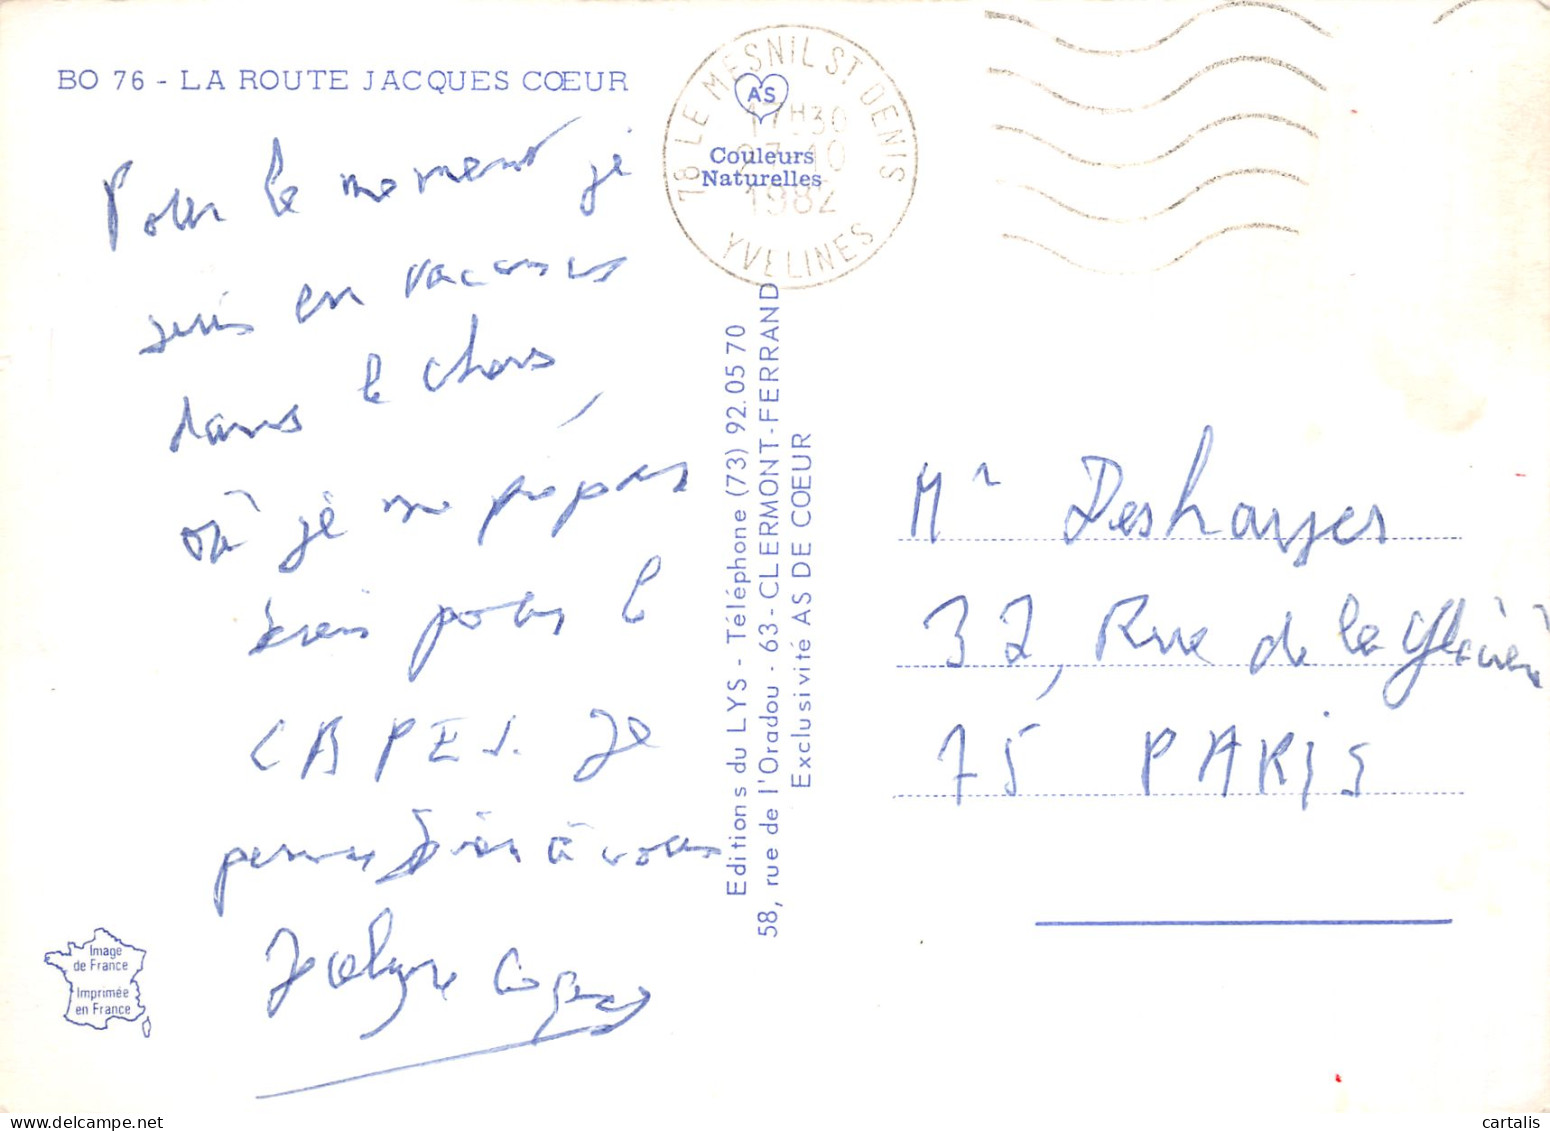 BO 76 - LA ROUTE JACQUES CŒUR
Pour le moment je
suis en vacances
dans le
où je me prépare
pour le
CAPES. Je
pense bien à vous
Jocelyne
Image
de France
Imprimée
en France
Editions du LYS - Téléphone (73) 92.05 70
58, rue de l'Oradou - 63 - CLERMONT-FERRAND
Exclusivité AS DE COEUR
AS
Couleurs
Naturelles
78 LE MESNIL ST DENIS
17H30
27-10
1982
YVELINES
Mr Deshayes
32, Rue de la Glacière
75 PARIS
cartalis